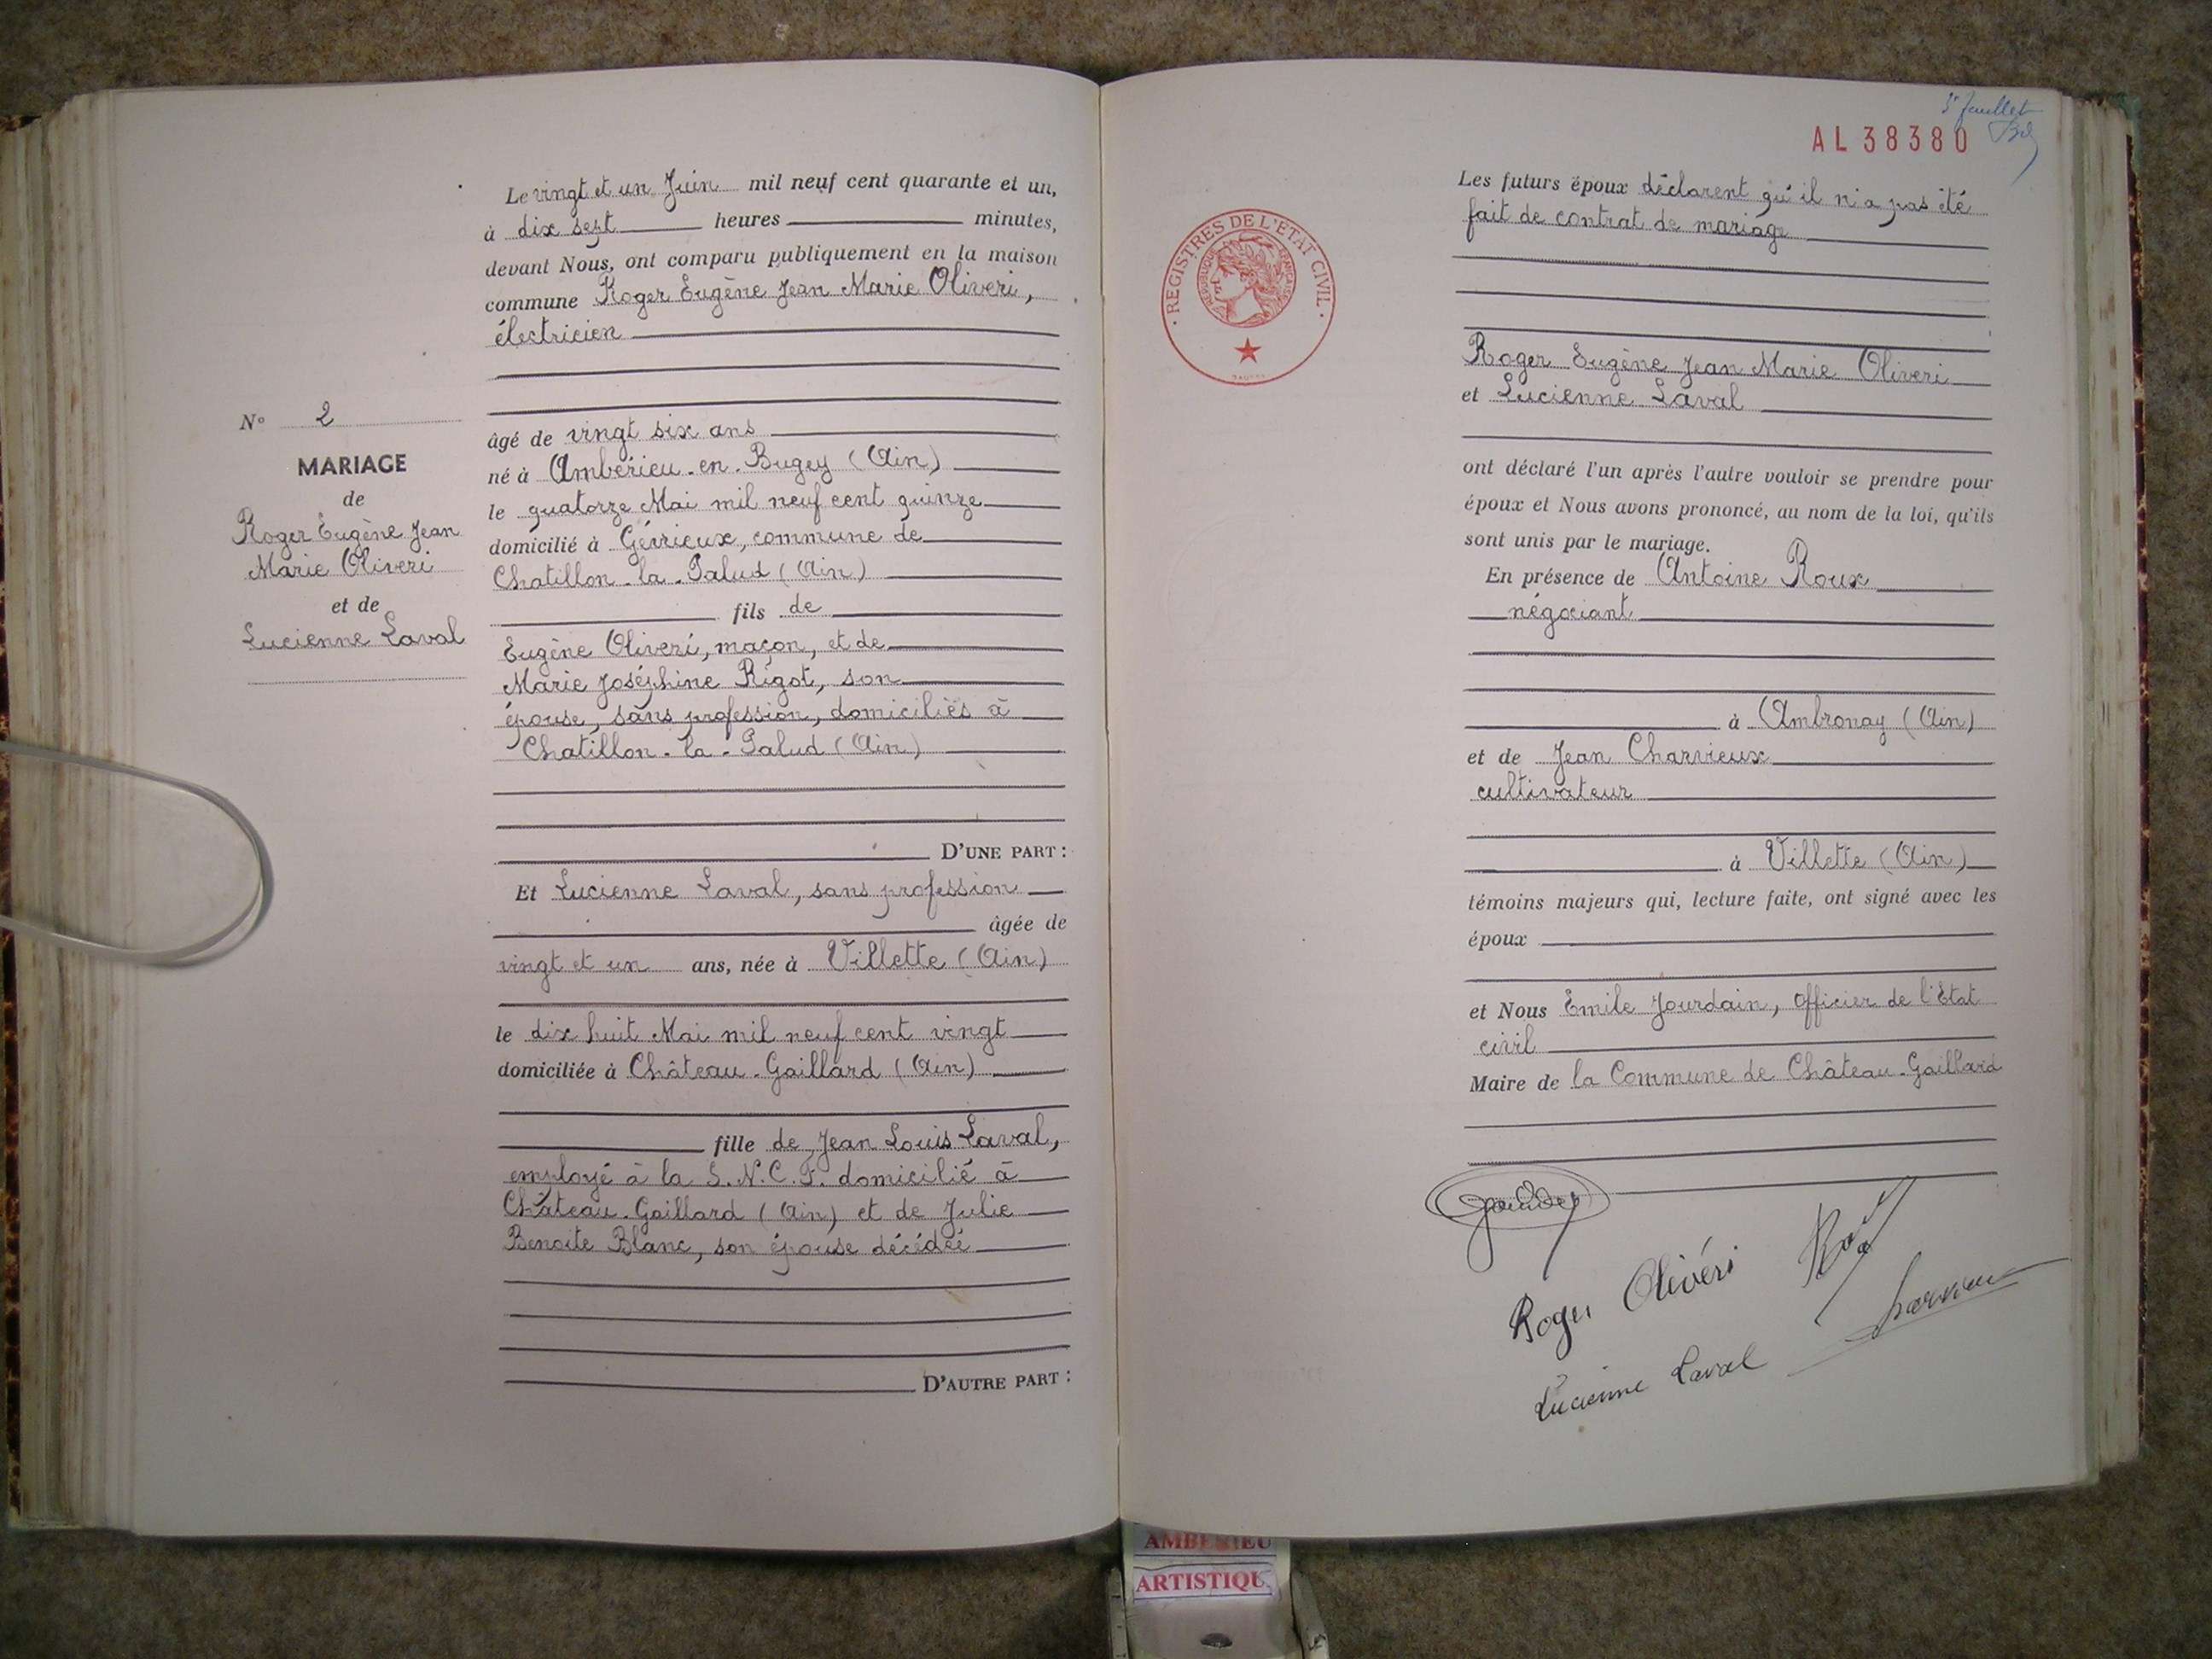 N° 2
MARIAGE
de
Roger Eugène Jean
Marie Oliveri
et de
Lucienne Laval
Le vingt et un Juin mil neuf cent quarante et un,
à dix sept heures minutes,
devant Nous, ont comparu publiquement en la maison
commune Roger Eugène Jean Marie Oliveri,
électricien
âgé de vingt six ans
né à Ambérieu-en-Bugey (Ain)
le quatorze Mai mil neuf cent quinze
domicilié à Gévrieux, commune de
Chatillon-la-Palud (Ain)
fils de
Eugène Oliveri, maçon, et de
Marie Joséphine Rigot, son
épouse, sans profession, domiciliés à
Chatillon-la-Palud (Ain)
D'UNE PART :
Et Lucienne Laval, sans profession
âgée de
vingt et un ans, née à Villette (Ain)
le dix huit Mai mil neuf cent vingt
domiciliée à Château-Gaillard (Ain)
fille de Jean Louis Laval,
employé à la S.N.C.F. domicilié à
Château-Gaillard (Ain) et de Julie
Benoite Blanc, son épouse décédée
D'AUTRE PART :
feuillet
AL 38380
REGISTRES DE L'ÉTAT CIVIL
RÉPUBLIQUE FRANÇAISE
Les futurs époux déclarent qu'il n'a pas été
fait de contrat de mariage
Roger Eugène Jean Marie Oliveri
et Lucienne Laval
ont déclaré l'un après l'autre vouloir se prendre pour
époux et Nous avons prononcé, au nom de la loi, qu'ils
sont unis par le mariage.
En présence de Antoine Roux
négociant
à Ambronay (Ain)
et de Jean Charvieux
cultivateur
à Villette (Ain)
témoins majeurs qui, lecture faite, ont signé avec les
époux
et Nous Emile Jourdain, Officier de l'Etat
civil
Maire de la Commune de Château-Gaillard
Roger Olivéri
Lucienne Laval
AMBERIEU
ARTISTIQU